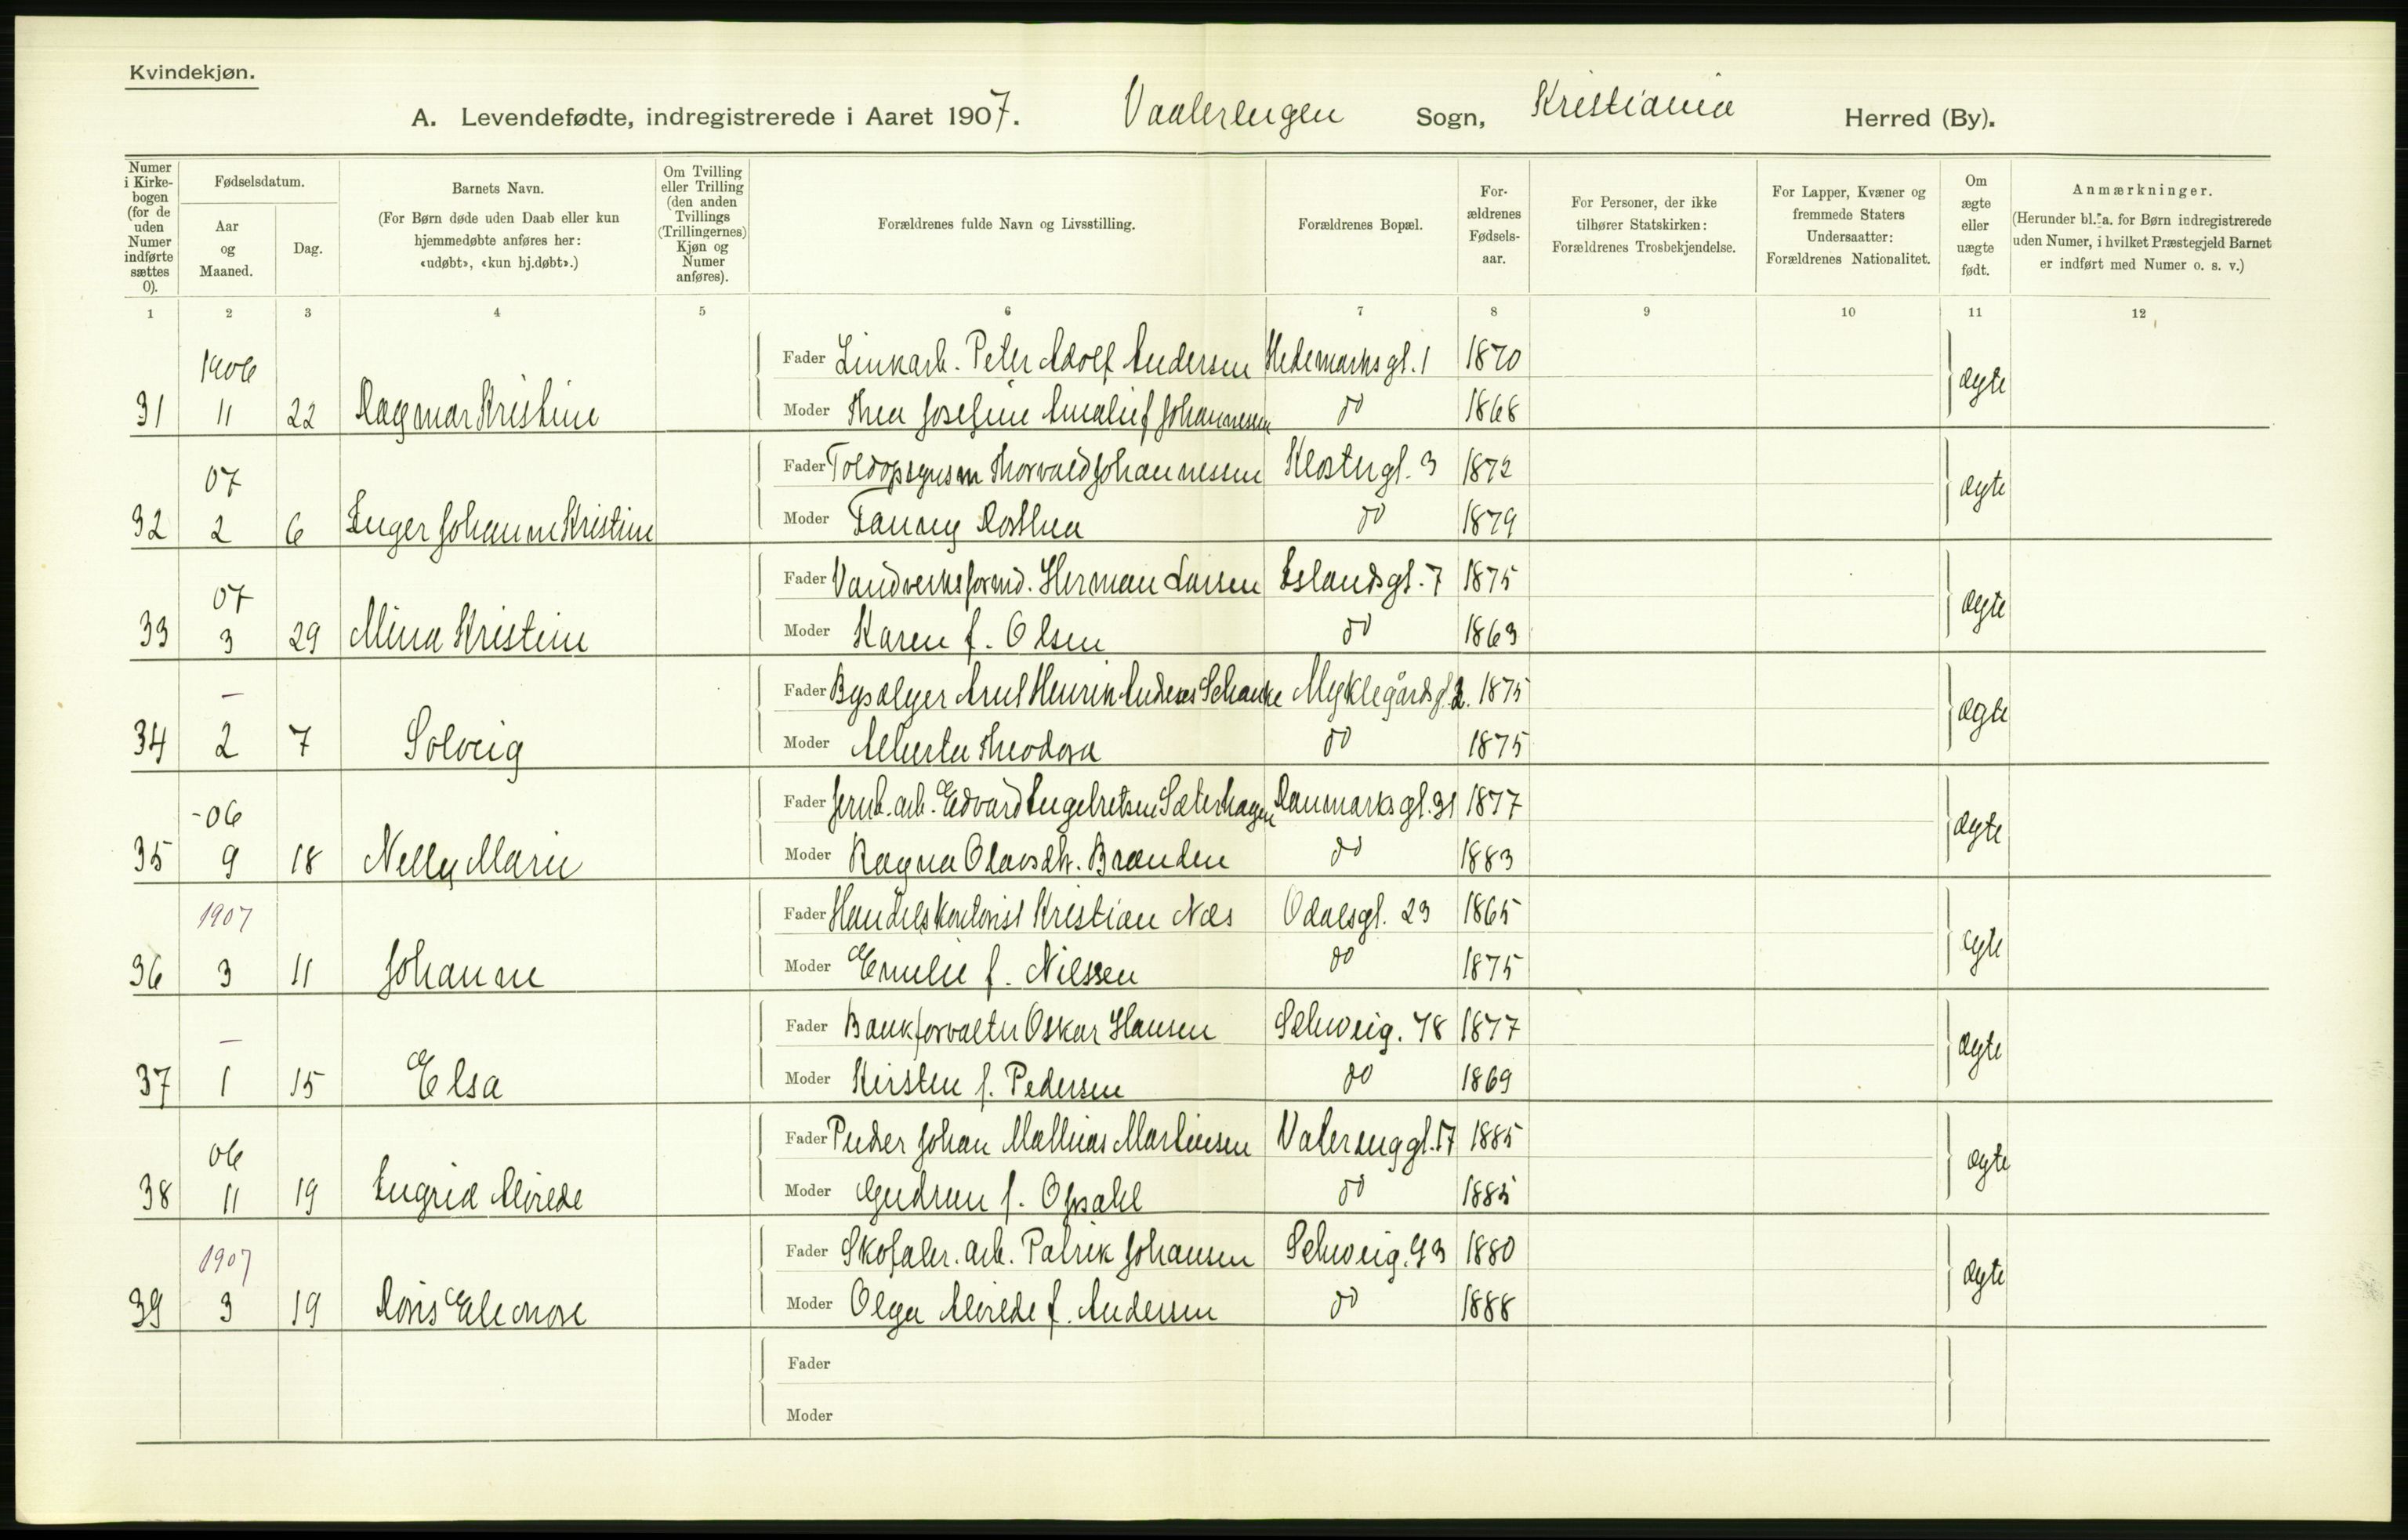 Kvindekjøn.
A. Levendefødte, indregistrerede i Aaret 1907. Vaalerengen Sogn, Kristiania Herred (By).
Numer i Kirke-bogen (for de uden Numer indførte sættes 0).
Fødselsdatum.
Aar og Maaned.
Dag.
Barnets Navn.
(For Børn døde uden Daab eller kun hjemmedøbte anføres her: «udøbt», «kun hj.døbt».)
Om Tvilling eller Trilling (den anden Tvillings (Trillingernes) Kjøn og Numer anføres).
Forældrenes fulde Navn og Livsstilling.
Forældrenes Bopæl.
For-ældrenes Fødsels-aar.
For Personer, der ikke tilhører Statskirken: Forældrenes Trosbekjendelse.
For Lapper, Kvæner og fremmede Staters Undersaatter: Forældrenes Nationalitet.
Om ægte eller uægte født.
Anmærkninger.
(Herunder bl. a. for Børn indregistrerede uden Numer, i hvilket Præstegjeld Barnet er indført med Numer o. s. v.)
1 2 3 4 5 6 7 8 9 10 11 12
1906 Fader Linkarb. Peter Adolf Andersen Hedemarksgt. 1 1870 ægte
31 11 22 Dagmar Kristine Moder Thea Josefine Amalie f Johannessen do 1868
07 Fader Toldopsynsm Thorvald Johannessen Klostergt. 3 1872 ægte
32 2 6 Inger Johanne Kristine Moder Fanny Dorthea do 1879
07 Fader Vandverksformd. Herman Larsen Islandsgt. 7 1875 ægte
33 3 29 Mina Kristine Moder Karen f. Olsen do 1863
— Fader Bysælger Henrik Schanke Myklegårdsg. 2. 1875 ægte
34 2 7 Solveig Moder Alberta Theodora do 1875
-06 Fader Jernb. arb. Edvard Engebretsen Sæterhagen Danmarksgt. 31 1877 ægte
35 9 18 Nelly Marie Moder Ragna Olavsdtr. Brænden do 1883
1907 Fader Handelskontorist Kristian Næs Odalsgt. 23 1865 ægte
36 3 11 Johanne Moder Emilie f. Nilssen do 1875
— Fader Bankforvalter Oskar Hansen Schweig. 78 1877 ægte
37 1 15 Elsa Moder Kirsten f. Pedersen do 1869
06 Fader Pudser Johan Mathias Martinsen Valerenggt. 17 1885 ægte
38 11 19 Ingrid Alvilde Moder Gudrun f. Opsahl do 1885
1907 Fader Skofabr. arb. Patrik Johansen Schweig. 93 1880 ægte
39 3 19 Doris Eleonore Moder Olga Alvilde f. Andersen do 1888
Fader
Moder